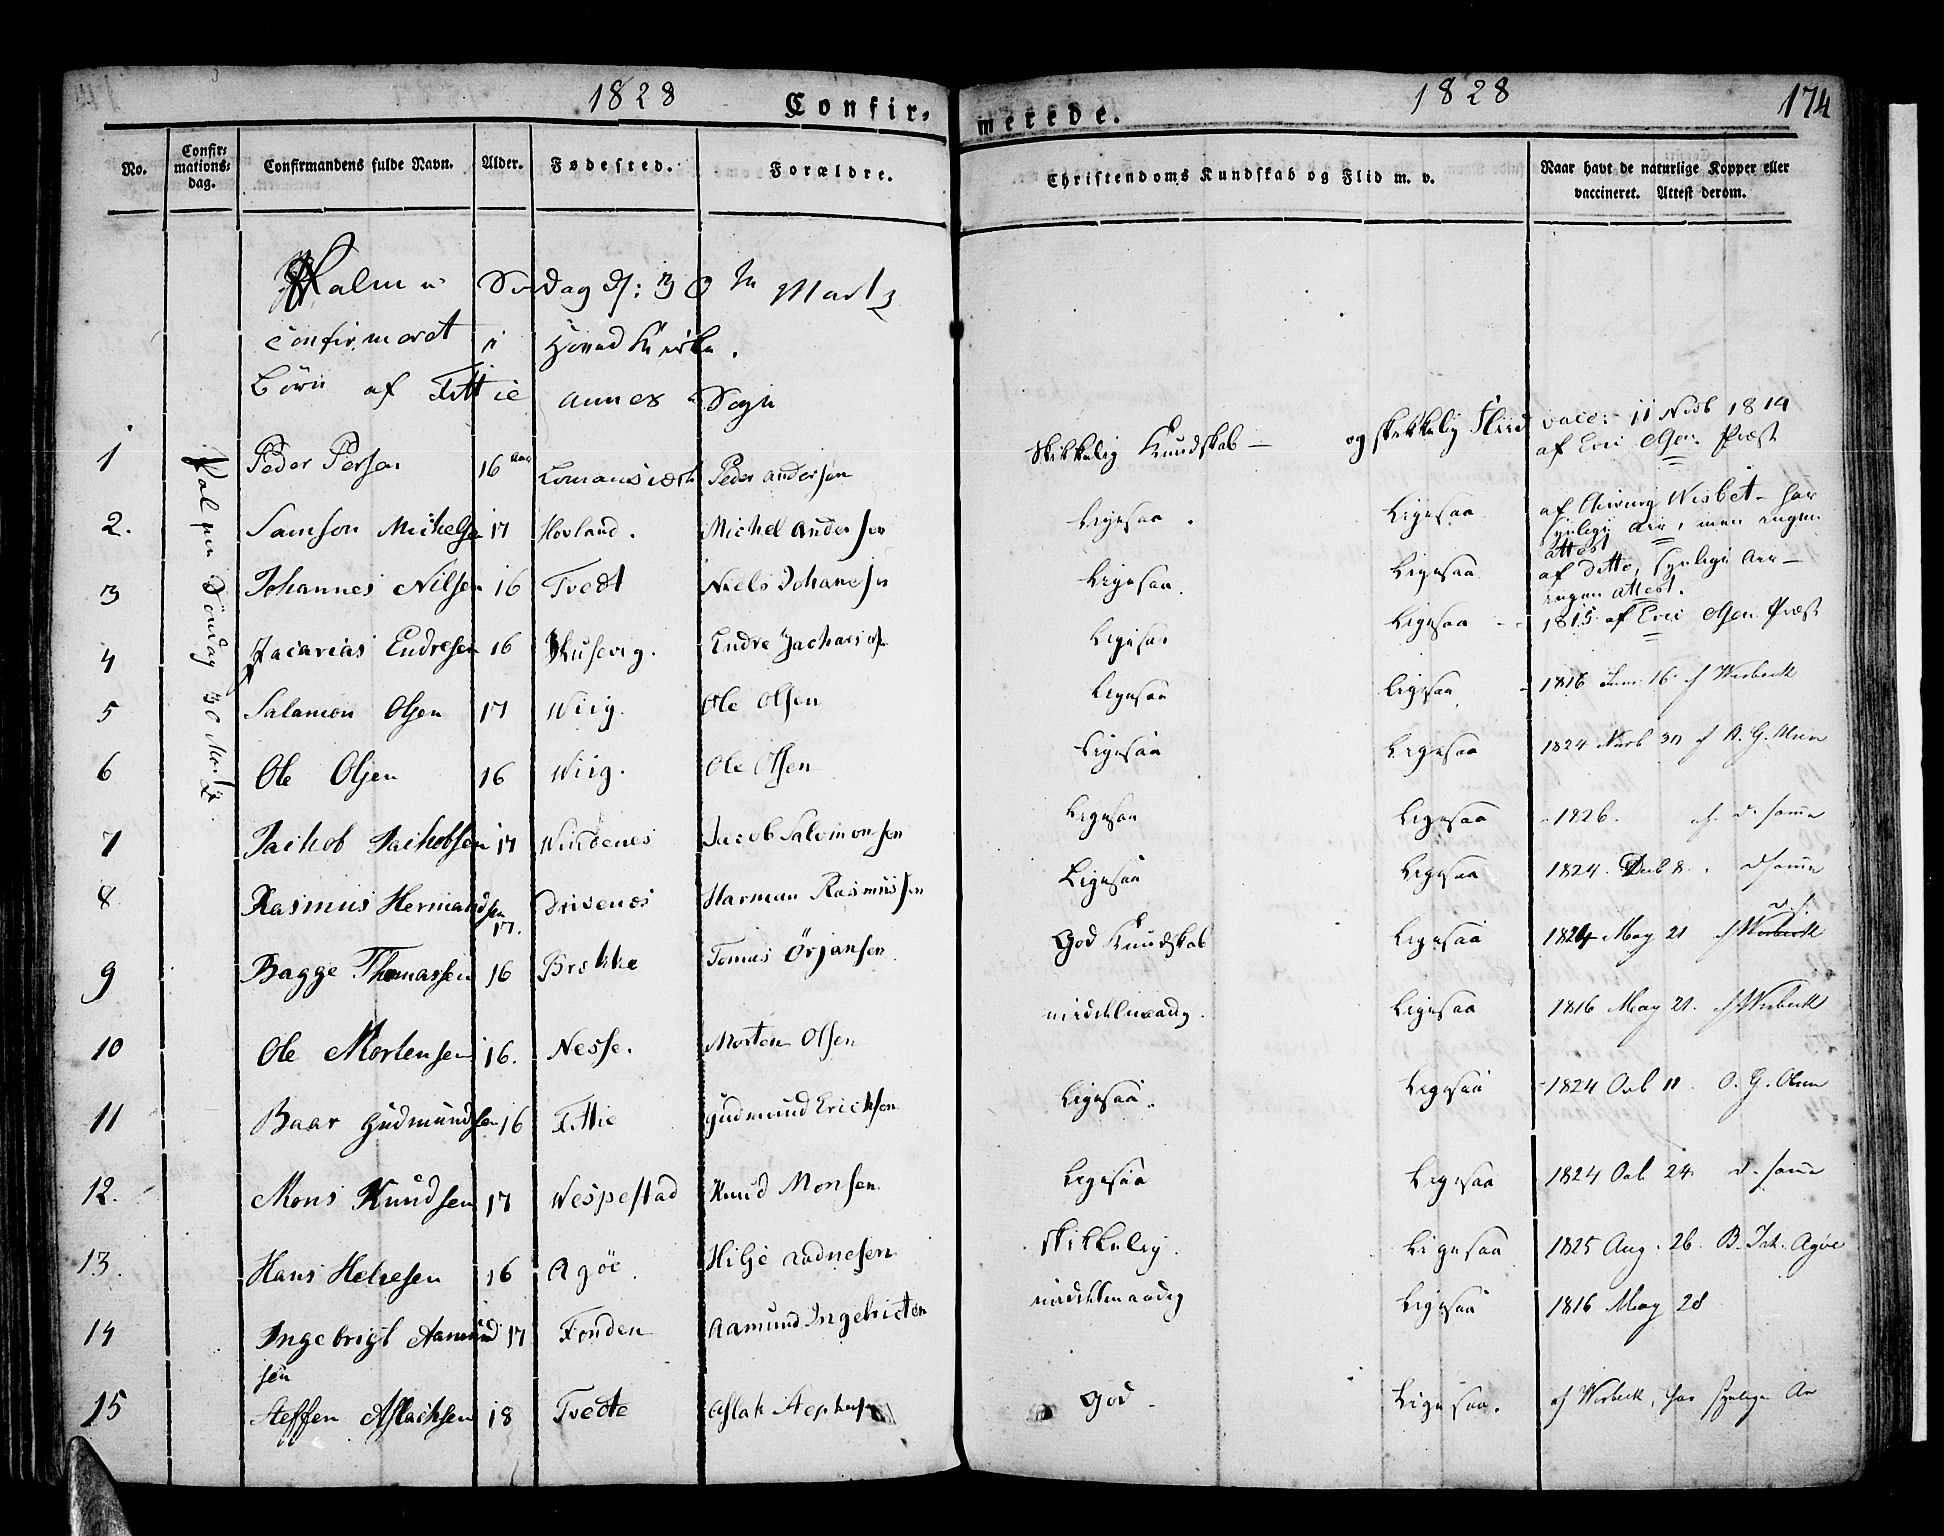 1828 Confir- merede. 1828 174
No. Confir- mations- dag. Confirmandens fulde Navn. Alder. Fødested. Forældre. Christendoms Kundskab og Flid m. v. Naar havt de naturlige Kopper eller vaccineret. Attest derom.
Palm Søndag d: 30 Martz
confirmeret i Hoved Kirke.
Börn af Fittie annex Sogn
Palme Söndag 30 Martz
1 Peder Person 16 Aar Peder Andersen Skikkelig Kundskab — og skikkelig Fliid vacc: 11 Novb 1814
af Eric Olsen Præst
2. Samson Mickelsen 17 Hovland. Michel Andersen Ligesaa. Ligesaa af Chirurg Wisbek - har
synlige Arr, men ingen
Attest
3 Johannes Nilsen 16 Tvedt Niels Johanesen Ligesaa. Ligesaa af ditto, synlige Arr —
ingen Attest.
4 Zacarias Endresen 16 Husevig. Endre Zachariasen Ligesaa Ligesaa 1815 af Eric Olsen Præst
5 Salamon Olsen 17 Wiig. Ole Olsen Ligesaa Ligesaa 1816 Juni 16 f Wisbeck
6 Ole Olsen 16 Wiig. Ole Olsen Ligesaa Ligesaa 1824 Novb 30 f
7 Jachob Jachobsen 17 Windenes Jacob Salomonsen Ligesaa Ligesaa 1826. af d. samme
8 Rasmus Hermandsen 17. Drivenes Harman Rasmussen Ligesaa Ligesaa 1824 Decb 8. d samme
9 Bagge Thomassen 16 Brekke Tomas Örjansen God Kundskab Ligesaa 1824 May 21 d. s.
10 Ole Mortensen 16. Nesse. Morten Olsen middelmaadig. Ligesaa 1816 May 21. f Wisbeck
11 Baar Gudmundsen 16 Fittie Gudmund Erichsen Ligesaa. Ligesaa 1824 Octb 11 O. G. Olsen
12. Mons Knudsen 17 Wespestad Knud Monsen Ligesaa Ligesaa 1824 Octb 24. d. samme
13. Hans Helgesen 16 Agöe Hilge Aadnesen skikkelig. Ligesaa 1825 Aug. 26 B. Jak. Agöe
14 Ingebrigt Aamund 17 Fonden Aamund Ingebricten middelmaadig Ligesaa 1816 May 28
sen
15 Steffen Aslachsen 18 Tvedte Aslak God Ligesaa. af Wisbeck, har synlige Ar